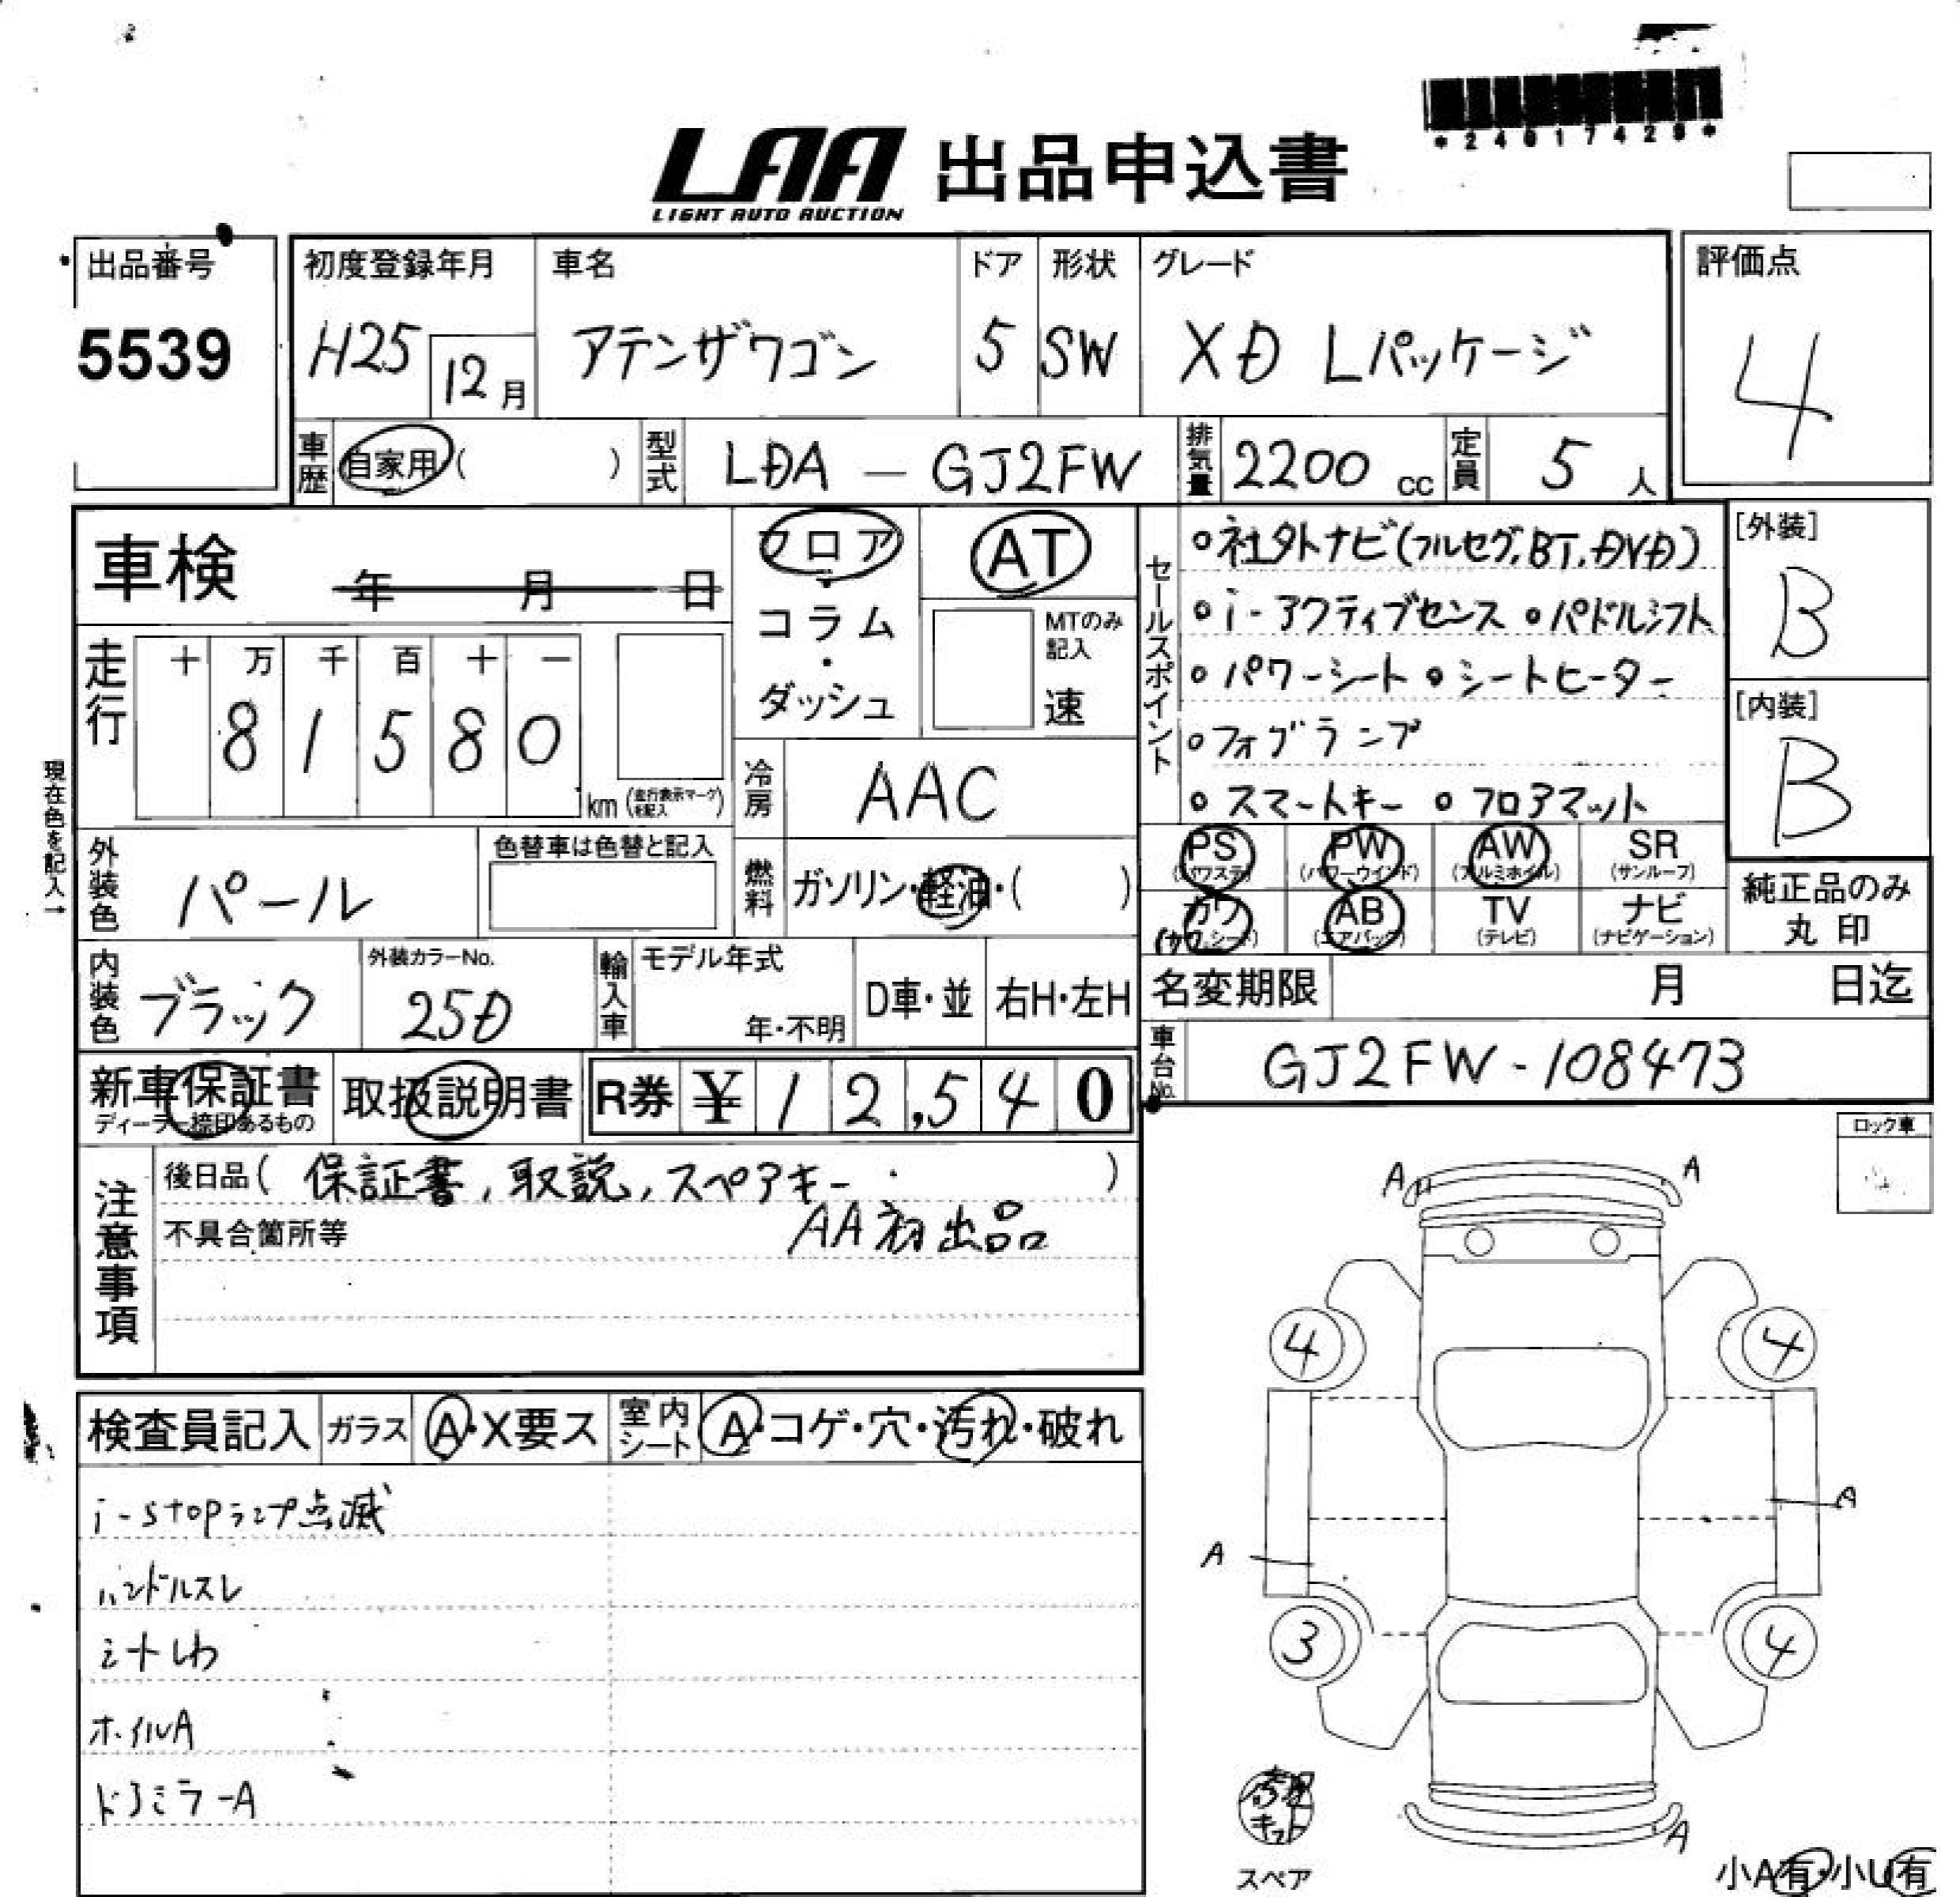 *24017429*
LAA 出品申込書
LIGHT AUTO AUCTION
出品番号
5539
初度登録年月
H25 12月
車名
アテンザワゴン
ドア
5
形状
SW
グレード
XD Lパッケージ
評価点
4
車歴 自家用 ( )
型式 LDA - GJ2FW
排気量 2200 cc
定員 5 人
車検 年 月 日
フロア・コラム・ダッシュ
AT
MTのみ記入
速
走行
十 万 千 百 十 一
8 1 5 8 0
km (走行表示マーク を記入)
冷房 AAC
現在色を記入→
外装色 パール
色替車は色替と記入
燃料 ガソリン・軽油・( )
内装色 ブラック
外装カラーNo.
25D
輸入車
モデル年式
年・不明
D車・並
右H・左H
新車保証書
ディーラー捺印あるもの
取扱説明書
R券 ¥ 1 2,5 4 0
セールスポイント
社外ナビ(フルセグ,BT,DVD)
i-アクティブセンス パドルシフト
パワーシート シートヒーター
フォグランプ
スマートキー フロアマット
[外装]
B
[内装]
B
PS (パワステ)
PW (パワーウインド)
AW (アルミホイル)
SR (サンルーフ)
カワ (カワシート)
AB (エアバック)
TV (テレビ)
ナビ (ナビゲーション)
純正品のみ
丸印
名変期限 月 日迄
車台No. GJ2FW-108473
注意事項
後日品( 保証書, 取説, スペアキー )
不具合箇所等
AA初出品
ロック車
検査員記入
ガラス A・X要ス
室内シート A・コゲ・穴・汚れ・破れ
i-stopランプ点滅
ハンドルスレ
シートしわ
ホイルA
ドアミラーA
A A
4 4
A
A
3 4
A
修理
キット
スペア
小A有・小U有